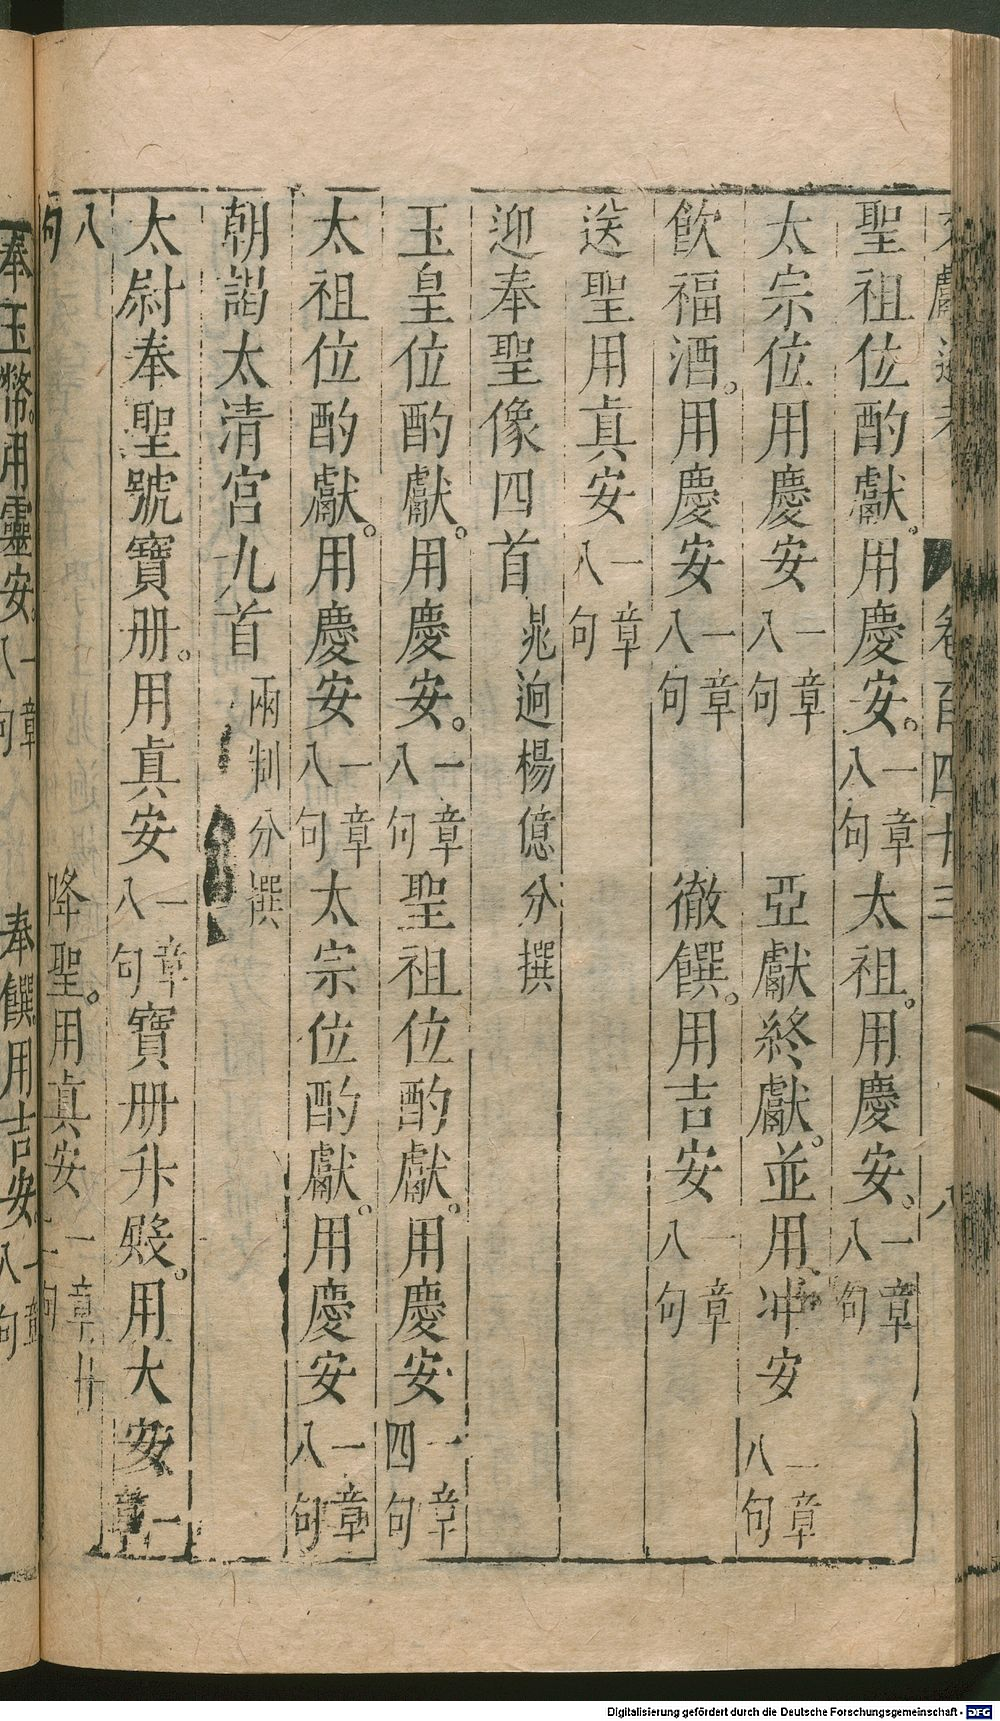 聖祖位酌獻。用慶安。一章八句 太祖。用慶安。一章八句
太宗位用慶安一章八句 亞獻終獻。並用冲安一章八句
飲福酒。用慶安一章八句 徹饌。用吉安一章八句
送聖用眞安一章八句
迎奉聖像四首晁逈楊億分撰
玉皇位酌獻。用慶安。一章八句 聖祖位酌獻。用慶安一章四句
太祖位酌獻。用慶安一章八句 太宗位酌獻。用慶安一章八句
朝謁太清宮九首兩制分撰
太尉奉聖號寶册。用眞安一章八句 寶册升殿。用大安一章
八句 降聖。用眞安一章
奉玉幣。用靈安一章八句 奉饌用吉安一章八句
卷百四十三 八
Digitalisierung gefördert durch die Deutsche Forschungsgemeinschaft - DFG